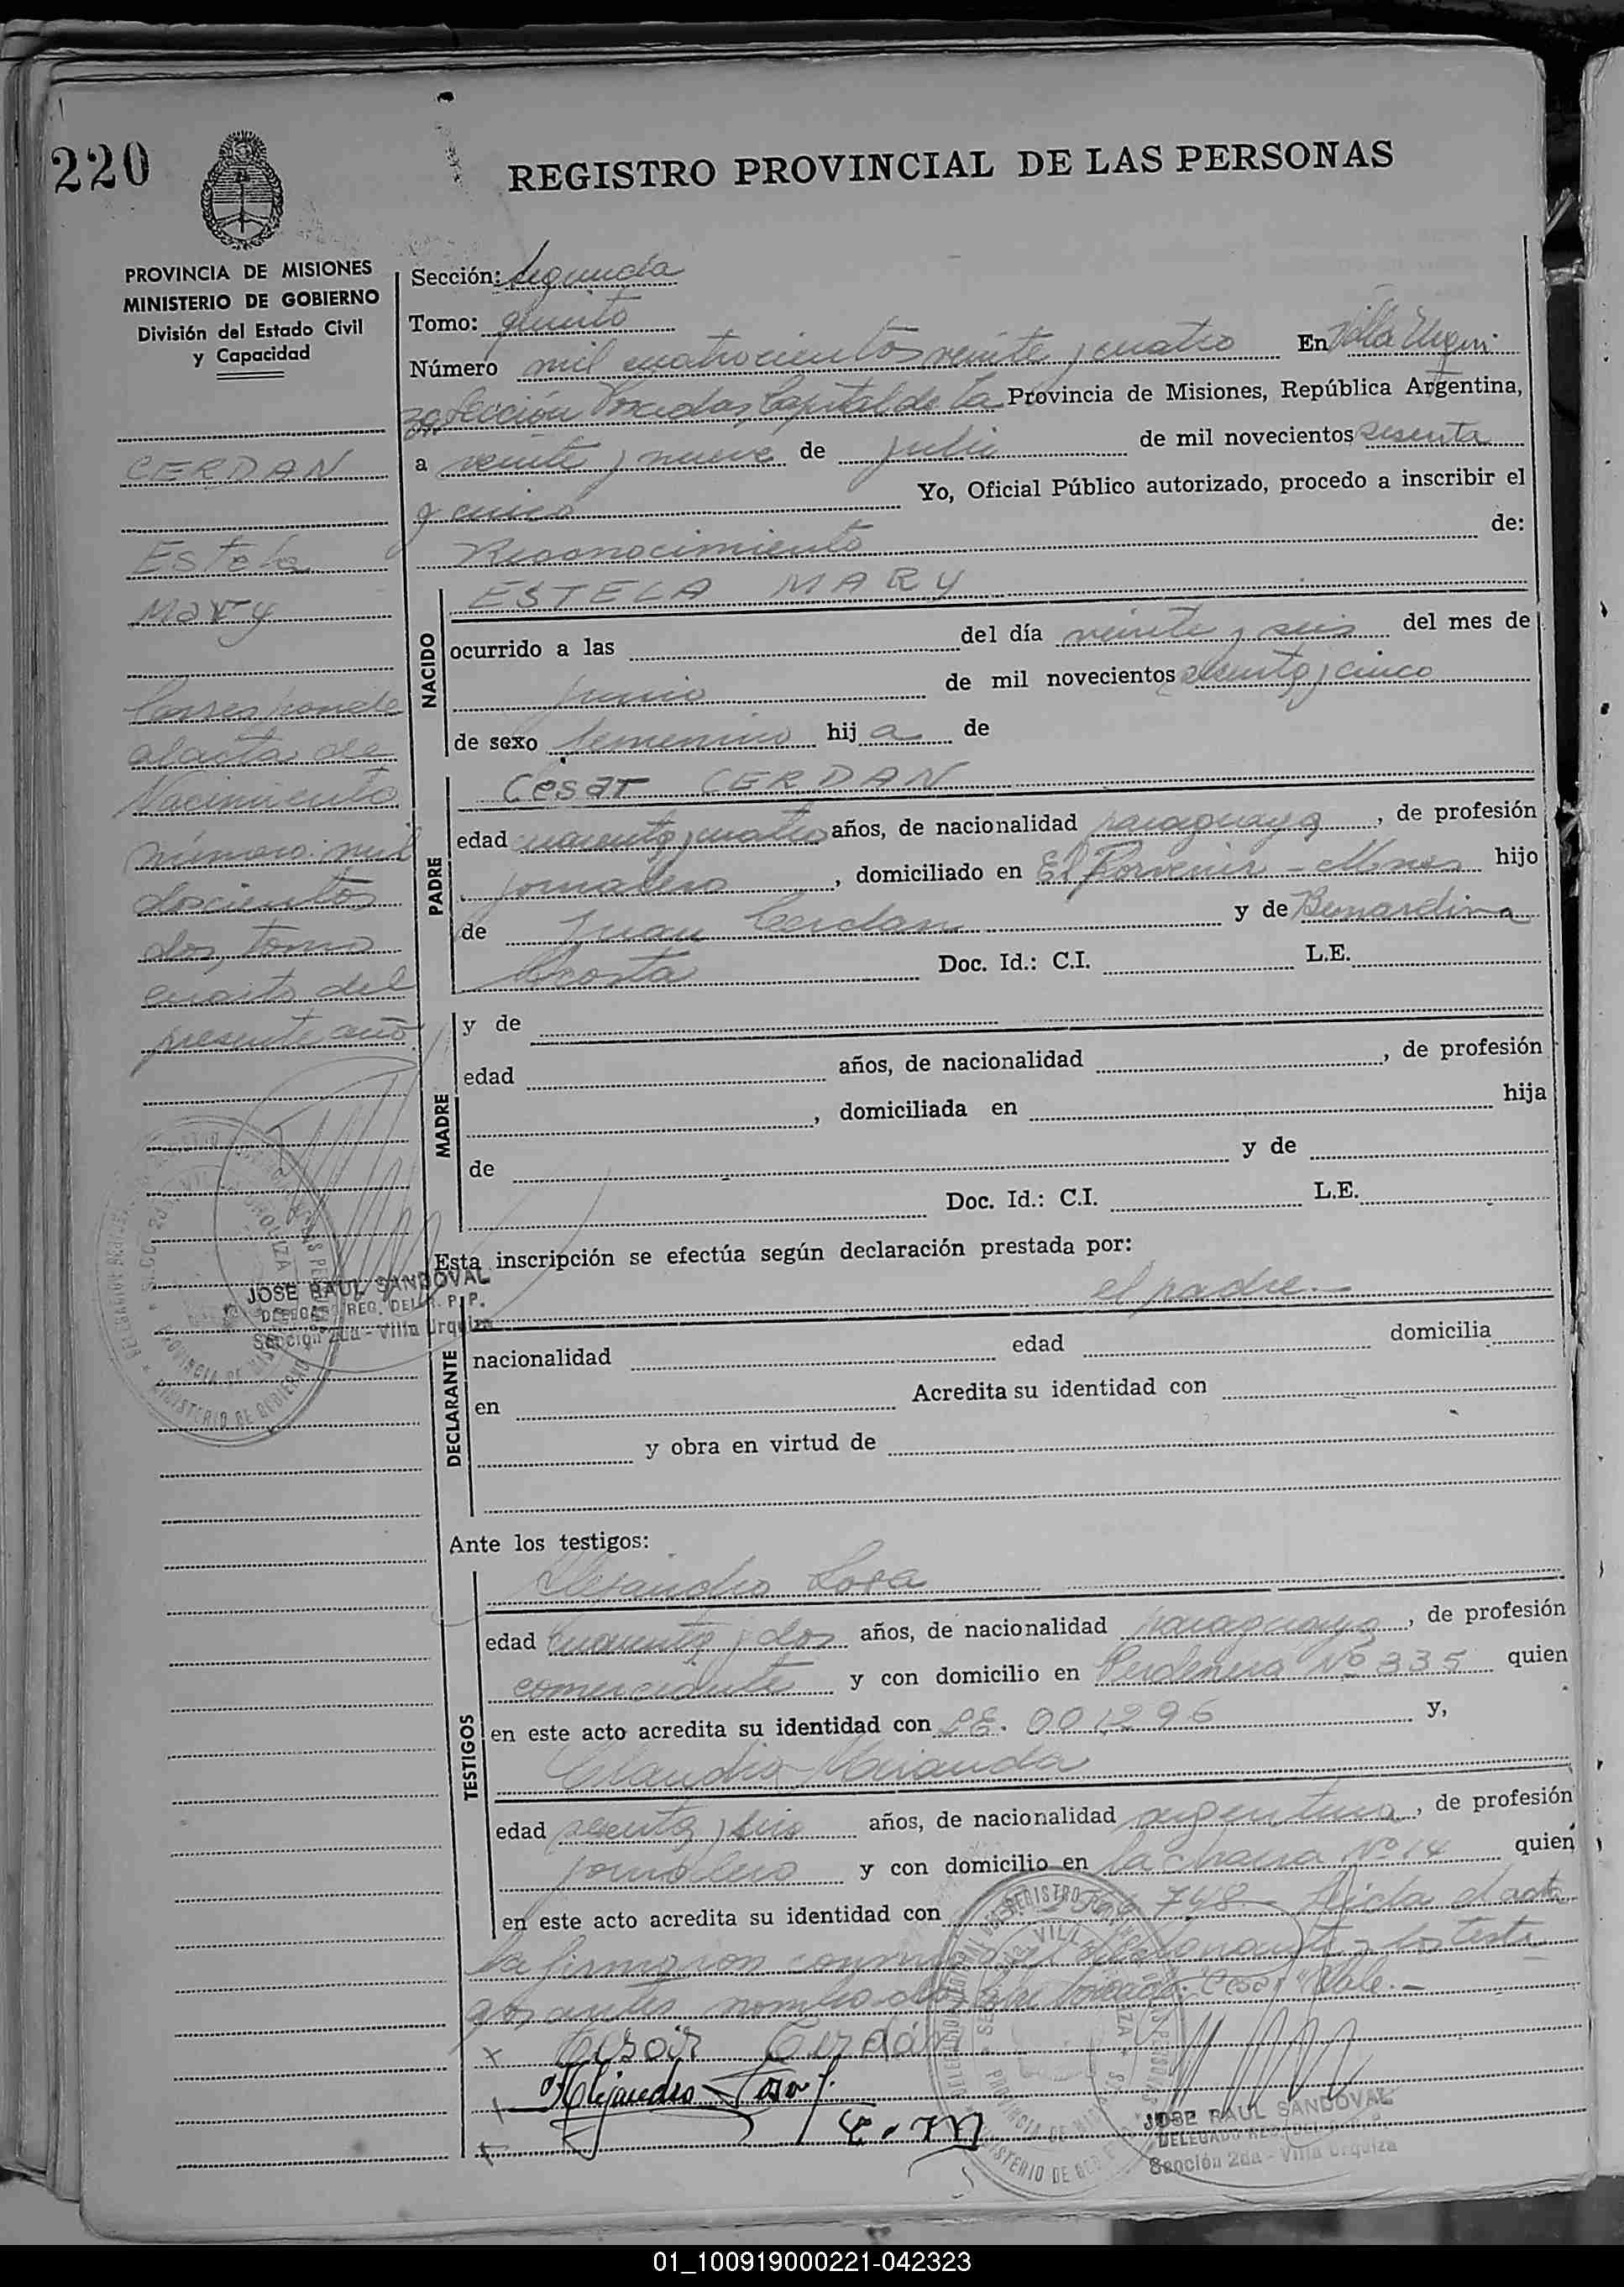 220
REGISTRO PROVINCIAL DE LAS PERSONAS
PROVINCIA DE MISIONES
MINISTERIO DE GOBIERNO
División del Estado Civil
y Capacidad
CERDAN
Estela
Mary
Corresponde
al acta de
Nacimiento
número: mil
doscientos
dos, tomo
cuarto del
presente año.
JOSE RAUL SANDOVAL
DELEGADO REG. DEL R. P. P.
Sección 2da - Villa Urquiza
Sección: Segunda
Tomo: quinto
Número mil cuatrocientos veinte y cuatro En Villa Urqui-
za Sección Posadas, Capital de la Provincia de Misiones, República Argentina,
a veinte y nueve de julio de mil novecientos sesenta
y cinco Yo, Oficial Público autorizado, procedo a inscribir el
Reconocimiento de:
NACIDO
ESTELA MARY
ocurrido a las del día veinte y seis del mes de
junio de mil novecientos sesenta y cinco
de sexo femenino hij a de
PADRE
Cesar CERDAN
edad cuarenta y cuatro años, de nacionalidad paraguaya, de profesión
jornalero, domiciliado en El Porvenir - Mnes hijo
de Juan Cerdan y de Bernardina
Acosta Doc. Id.: C.I. L.E.
MADRE
y de
edad años, de nacionalidad , de profesión
, domiciliada en hija
de y de
Doc. Id.: C.I. L.E.
Esta inscripción se efectúa según declaración prestada por:
el padre.-
DECLARANTE
nacionalidad edad domicilia
en Acredita su identidad con
y obra en virtud de
Ante los testigos:
TESTIGOS
Alejandro Sosa
edad cuarenta y dos años, de nacionalidad paraguaya, de profesión
comerciante y con domicilio en Pedernera Nº 335 quien
en este acto acredita su identidad con CE. 001,296 y,
Claudio Miranda
edad sesenta y seis años, de nacionalidad argentina, de profesión
jornalero y con domicilio en la chacra Nº 14 quien
en este acto acredita su identidad con 748 - Leida el acta
la firmaron conmigo el declarante y los testi-
gos antes nombrados. Sobre borrado: "Cesar" Vale.-
x Cesar Cerdán
x Alejandro Sosa
x C. M
JOSE RAUL SANDOVAL
DELEGADO REG. DEL R. P. P.
Sección 2da - Villa Urquiza
01_100919000221-042323